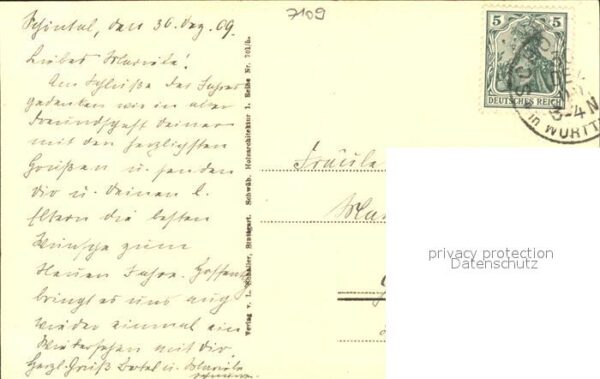 Schöntal, den 30. Dez. 09.
7109
Liebes Mariele!
Am Schluße des Jahres
gedenken wir in alter
Freundschaft deiner
mit den herzlichsten
Grüßen u. senden
dir u. deinen l.
Eltern die besten
Wünsche zum
Neuen Jahre. Hoffentl.
bringt es uns auch
wieder einmal ein
Wiedersehen mit dir
Herzl. Gruß u. Mariele
Verlag v. L. Schaller, Stuttgart. Schwäb. Holzarchitektur 1. Reihe Nr. 701/5.
5 5
DEUTSCHES REICH
SCHÖ
DEZ
3-4 N
in WÜRTT
Fräule
Mar
privacy protection
Datenschutz